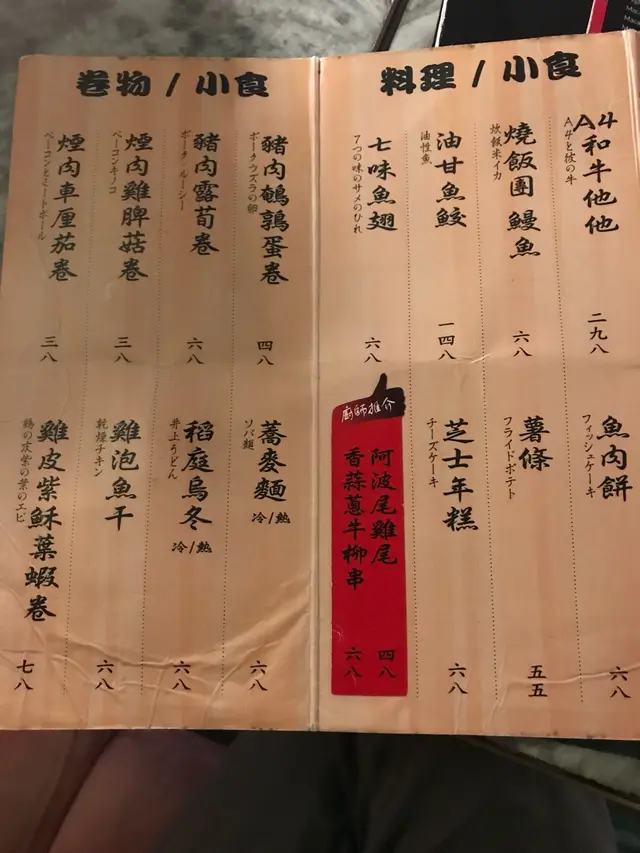 料理 / 小食
A4和牛他他
A4と彼の牛
二九八
燒飯團鰻魚
炊飯米イカ
六八
油甘魚鮫
油性魚
一四八
七味魚翅
7つの味のサメのひれ
六八
魚肉餅
フィッシュケーキ
六八
薯條
フライドポテト
五五
芝士年糕
チーズケーキ
六八
廚師推介
阿波尾雞尾
四八
香蒜蔥牛柳串
六八
卷物 / 小食
豬肉鵪鶉蛋卷
ポークウズラの卵
四八
豬肉露荀卷
ポークルーシー
六八
煙肉雞脾菇卷
ベーコンキノコ
三八
煙肉車厘茄卷
ベーコンとミートボール
三八
蕎麥麵
冷/熱
ソバ麺
六八
稻庭烏冬
冷/熱
井上うどん
六八
雞泡魚干
乾燥チキン
六八
雞皮紫穌葉蝦卷
鶏の皮紫の葉のエビ
七八